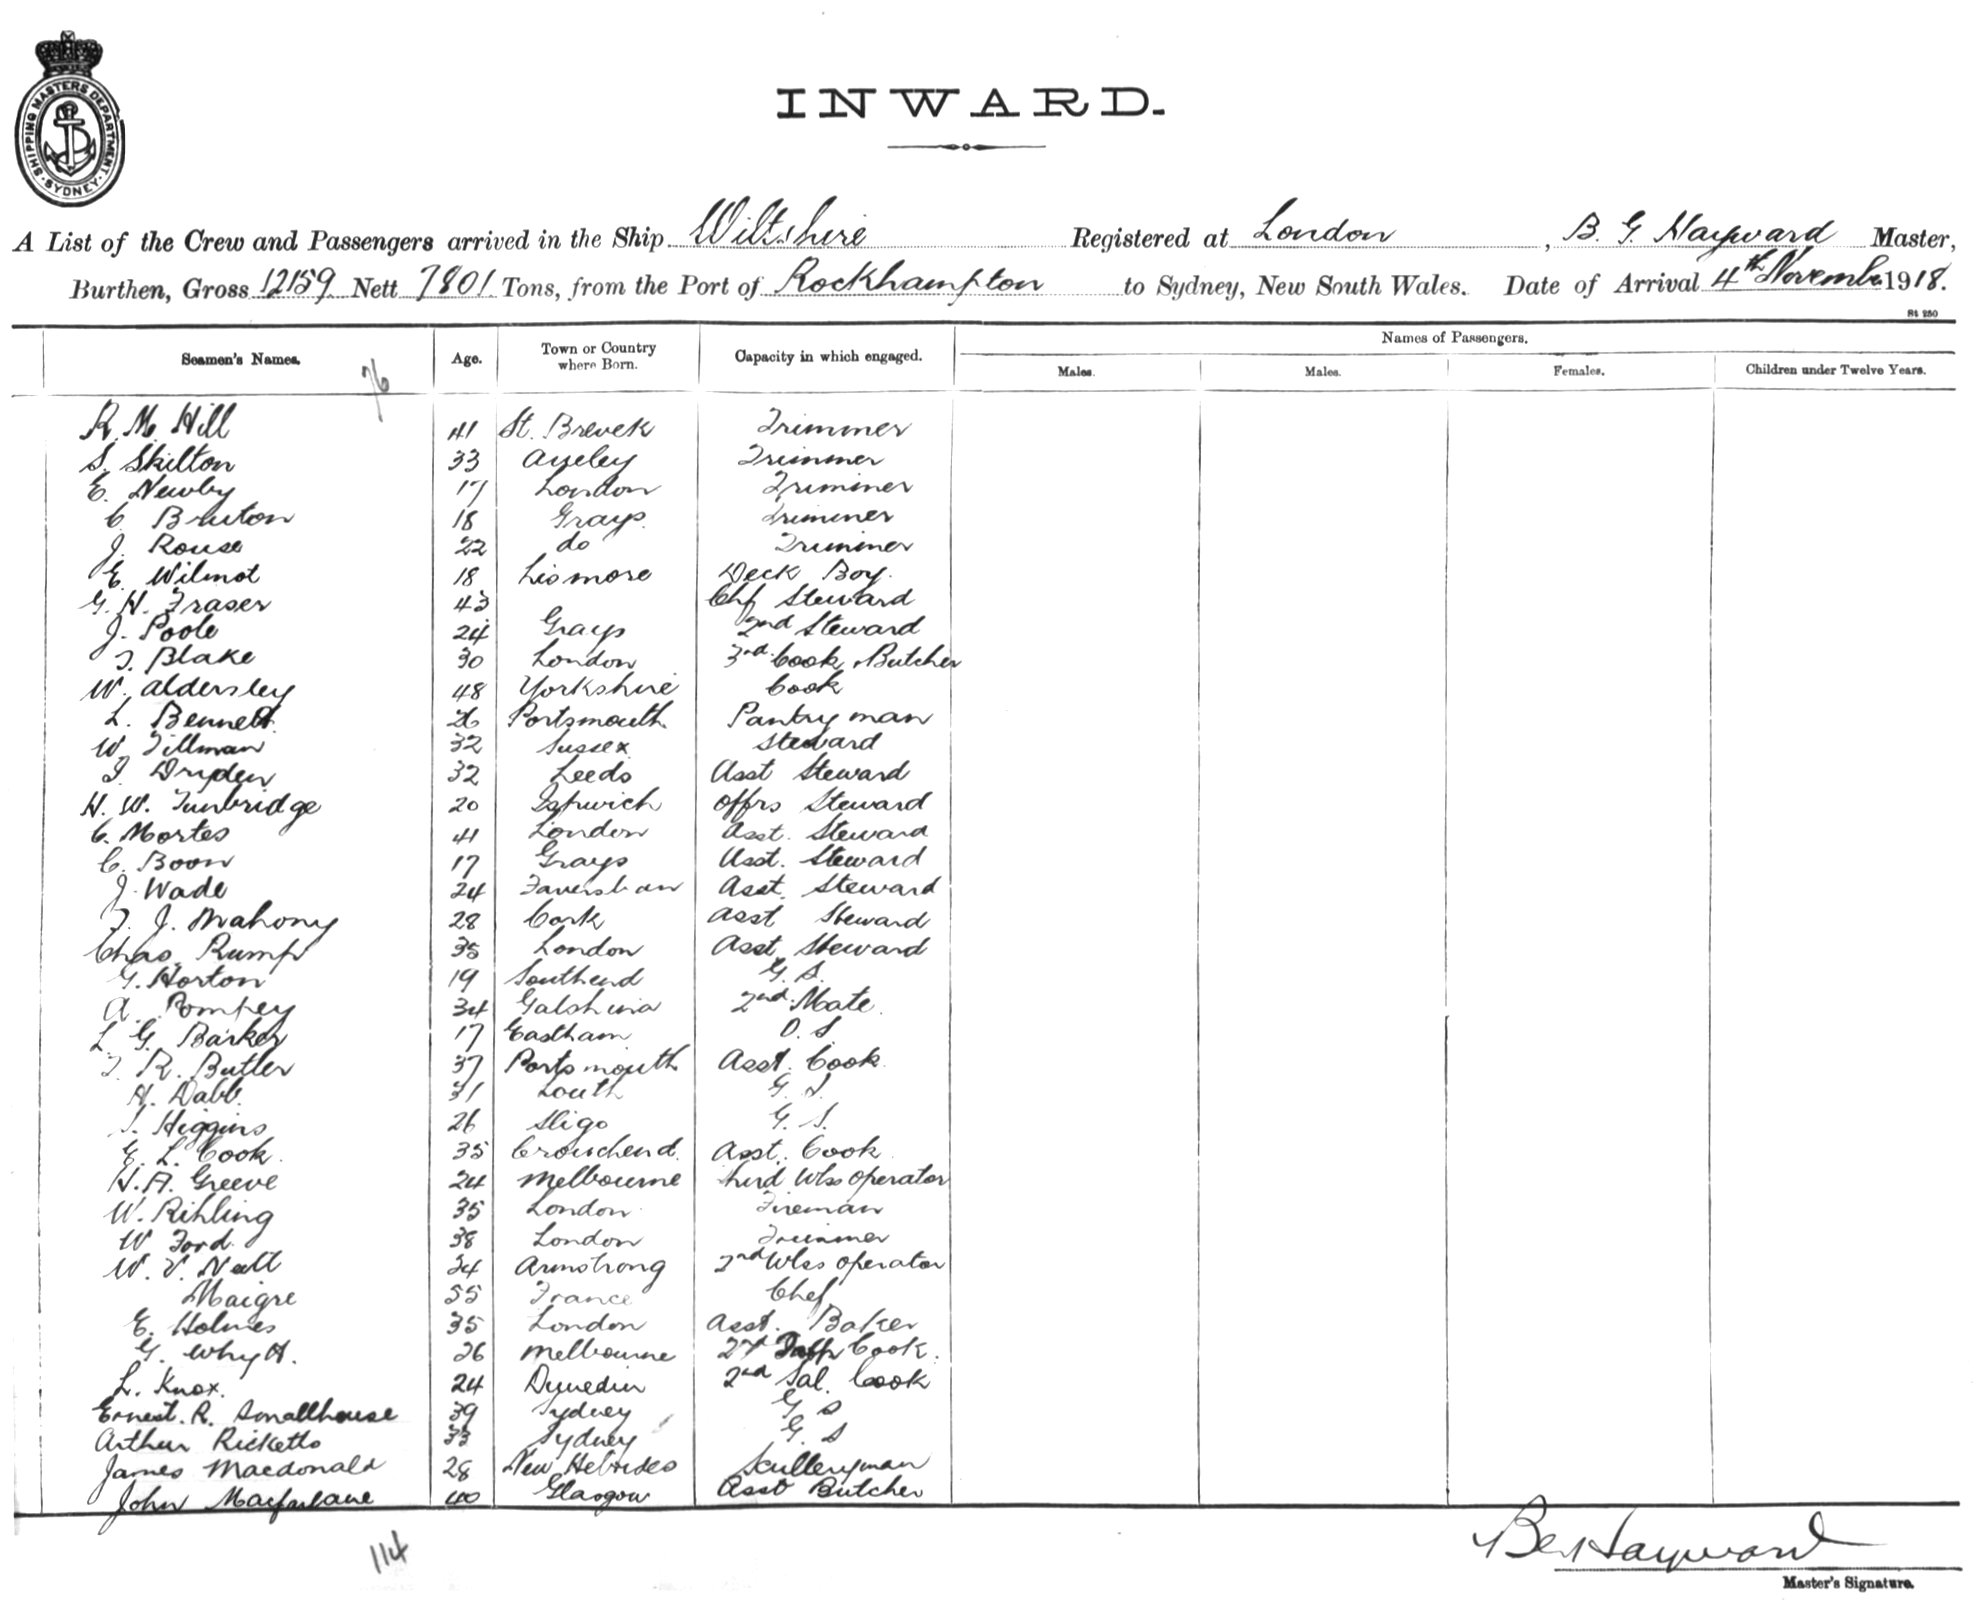 SHIPPING MASTERS DEPARTMENT.
SYDNEY
INWARD.
A List of the Crew and Passengers arrived in the Ship Wiltshire Registered at London, B. G. Hayward Master,
Burthen, Gross 12159 Nett 7801 Tons, from the Port of Rockhampton to Sydney, New South Wales. Date of Arrival 4th Novembe 1918.
St 250
Seamen's Names. 76 Age. Town or Country where Born. Capacity in which engaged. Names of Passengers.
Males. Males. Females. Children under Twelve Years.
R. M. Hill 41 St. Breverk Trimmer
S. Skilton 33 Aveley Trimmer
E. Newby 17 London Trimmer
C Bruton 18 Grays. Trimmer
J. Rouse 22 do Trimmer
E. Wilmot 18 Lismore Deck Boy.
G. H. Fraser 43 Chf Steward
J. Poole 24 Grays 2nd Steward
T. Blake 30 London 3rd Cook & Butcher
W. Aldersley 48 Yorkshire Cook
L. Bennett. 26 Portsmouth Pantryman
W. Tillman 32 Sussex Steward
T. Dryden 32 Leeds Asst Steward
H. W. Tunbridge 20 Ipswich Offrs Steward
C. Mortes 41 London Asst. Steward
C. Boon 17 Grays Asst. Steward
J. Wade 24 Faversham Asst. Steward
T. J. Mahony 28 Cork Asst Steward
Chas. Rump 35 London Asst. Steward
G. Horton 19 Southend G. S.
A. Pompey 34 Galshina 2nd Mate.
L. G. Barker 17 Eastham O. S
T. R. Butler 37 Portsmouth Asst. Cook
H. Dabb. 31 Louth G. S.
T. Higgins 26 Sligo G. S.
E. L. Cook. 35 Crouchend. Asst. Cook
H. A. Greeve 24 Melbourne third Wlss operator
W. Rihling 35 London Fireman
W Ford. 38 London Trimmer
W. V. Natt 24 Armstrong 2nd Wlss operator
Maigre 55 France Chef
E. Holmes 35 London Asst. Baker
G. Whytt. 26 Melbourne 2nd Cook.
L. Knox. 24 Dunedin 2nd Sal. Cook
Ernest. R. Smallhouse 39 Sydney G S
Arthur Ricketts 33 Sydney G. S
James Macdonald 28 New Hebrides Sculleryman
John Macfarlane 40 Glasgow Asst Butcher
114
B G Hayward
Master's Signature.